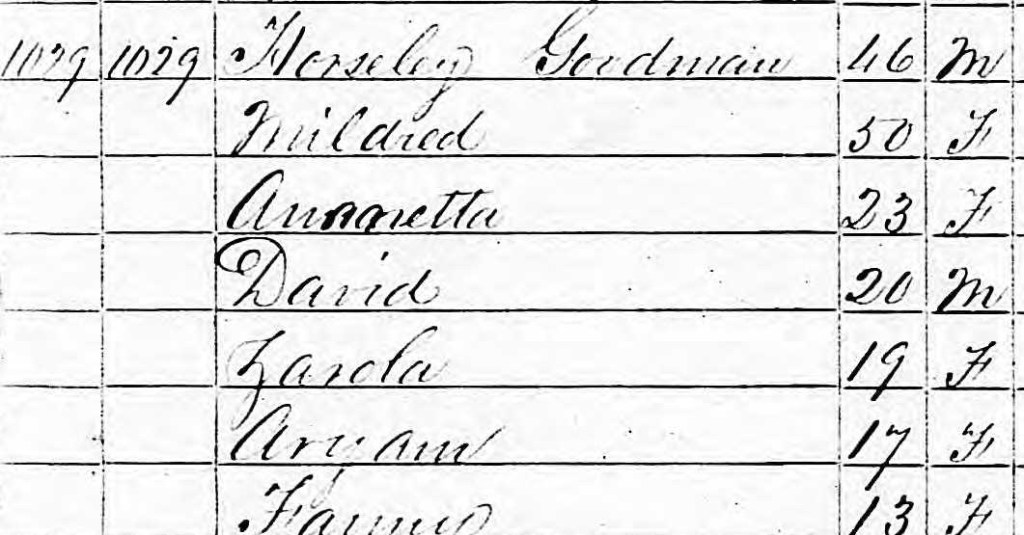 1029 1029 Horseley Goodman 46 M
Mildred 50 F
Annanetta 23 F
David 20 M
Zarola 19 F
Aryann 17 F
Fanny 13 F